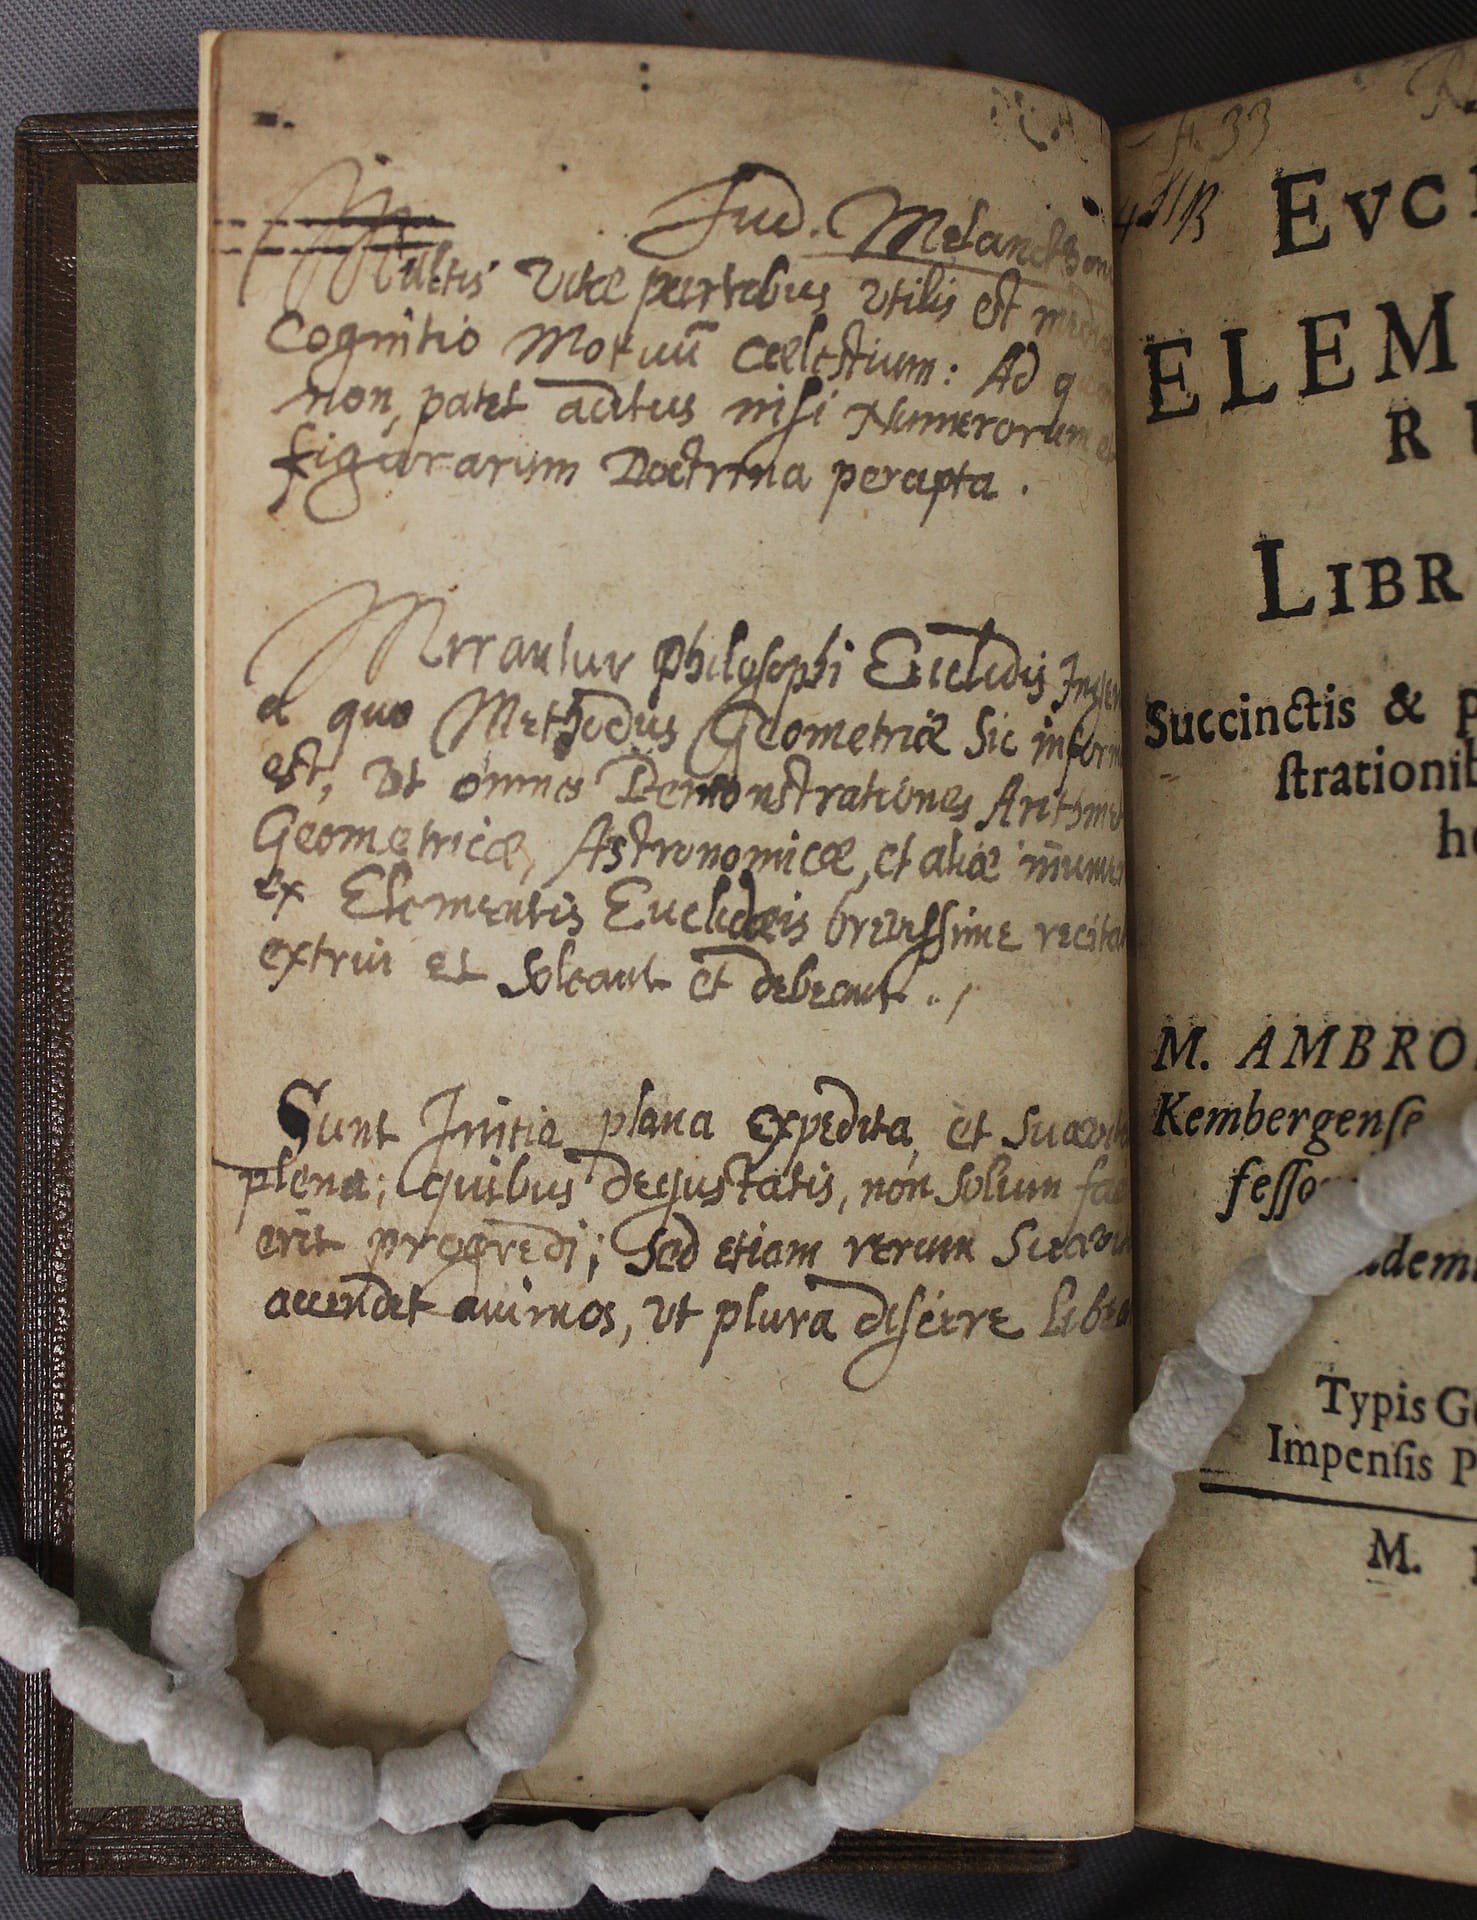 Jud. Melancthon
Multis vitæ partibus utilis est
Cognitio Motuū Cælestium: Ad
non patet aditus nisi Numerorum
figurarum Doctrina percepta.
Mirantur Philosophi Euclidis Ingen
a quo Methodus Geometriæ sic inform
est, Vt omnes Demonstrationes Arithme
Geometricæ, Astronomicæ, et aliæ
ex Elementis Euclidæis brevissime recita
extrui et soleant et debeant.
Sunt Initia plana expedita, et suavi
plena; quibus degustatis, non solum fa
erit progredi; sed etiam rerum Suavi
accendet animos, ut plura discere
4. 33
EVC
ELEM
R
LIBR
Succinctis & p
strationib
M. AMBRO
Kembergense
fesso
adem
Typis G
Impensis P
M.